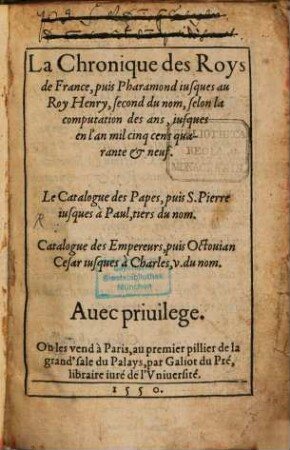 La Chronique des Roys
de France, puis Pharamond iusques au
Roy Henry, second du nom, selon la
computation des ans, iusques
en l'an mil cinq cens qua-
rante & neuf.
BIBLIOTHECA
REGIA
MONACENSIS
Le Catalogue des Papes, puis S. Pierre
iusques à Paul, tiers du nom.
Catalogue des Empereurs, puis Octouian
Cesar iusques à Charles, v. du nom.
Staatsbibliothek
München
Auec priuilege.
On les vend à Paris, au premier pillier de la
grand' sale du Palays, par Galiot du Pré,
libraire iuré de l'Vniuersité.
1550.